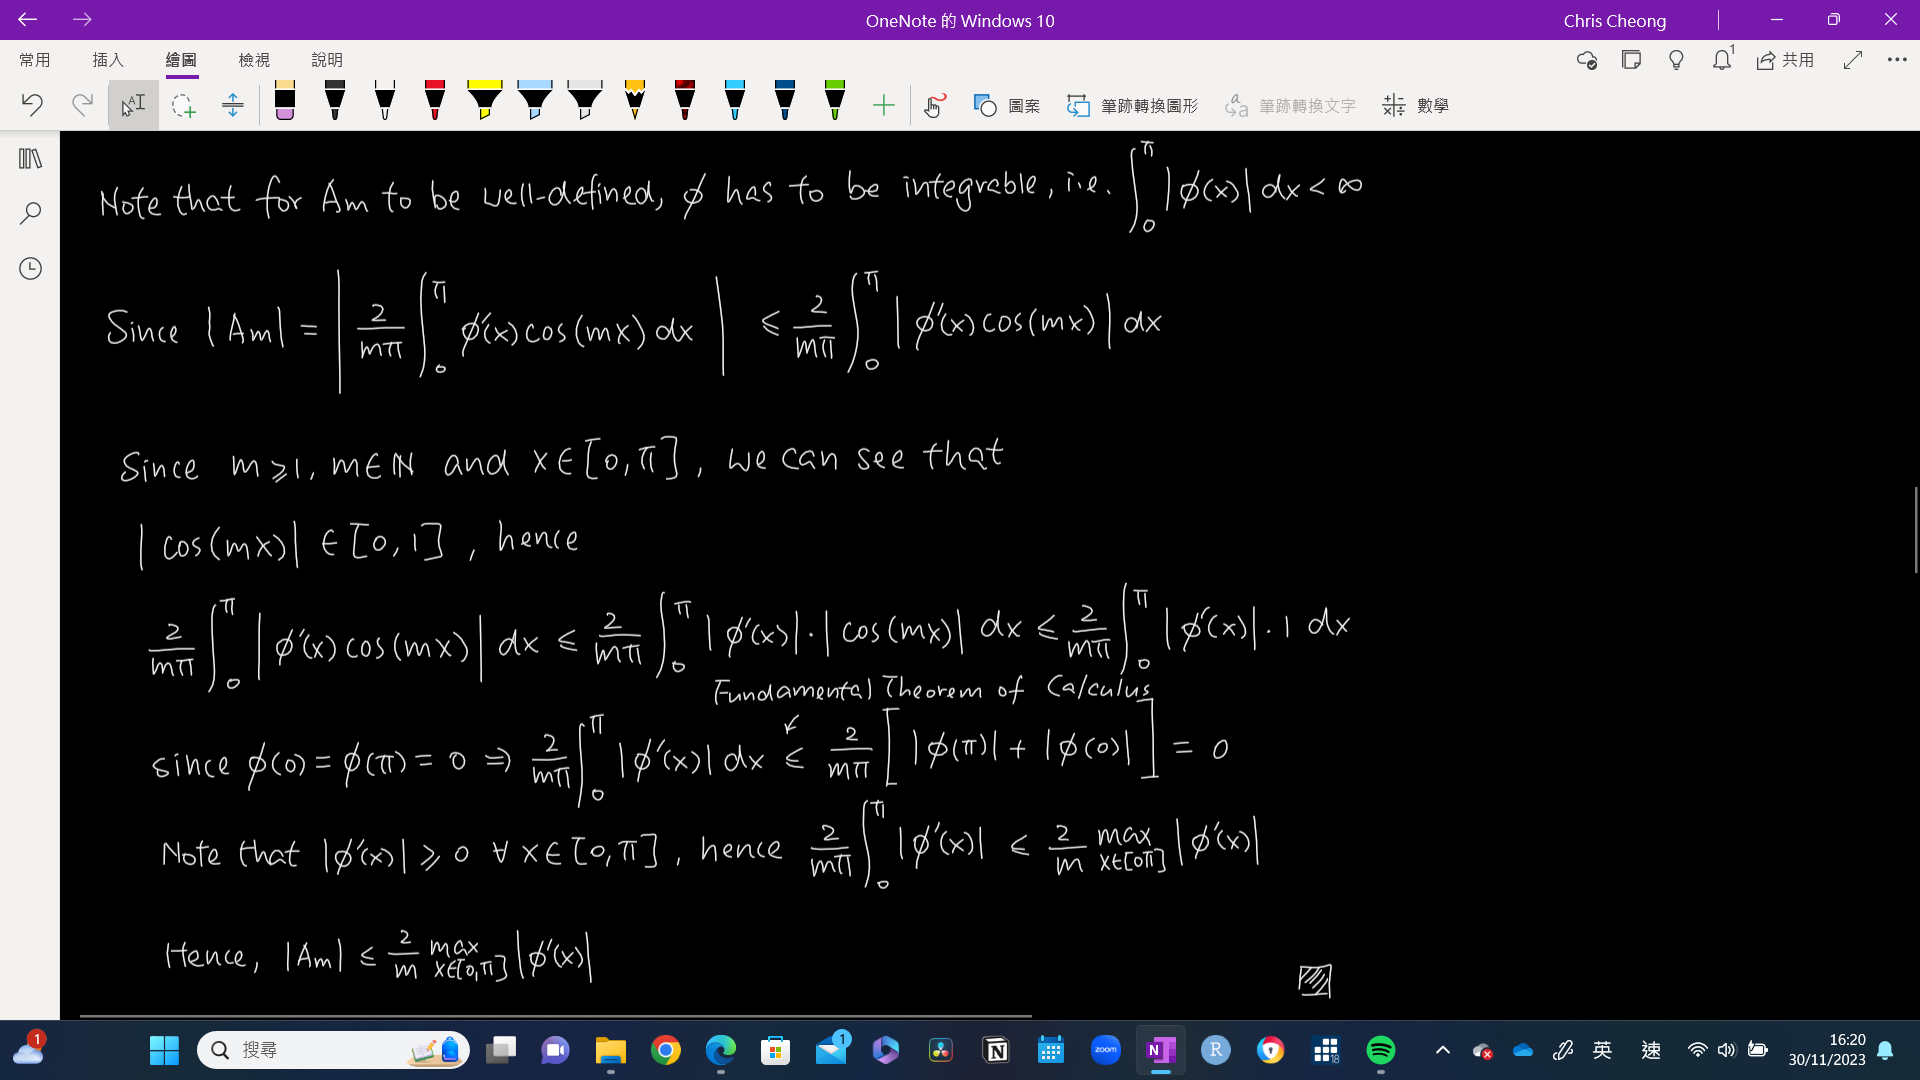 OneNote 的 Windows 10
Chris Cheong
常用 插入 繪圖 檢視 說明
1
共用
圖案 筆跡轉換圖形 筆跡轉換文字 數學
Note that for Am to be well-defined, ϕ has to be integrable, i.e. ∫₀^π |ϕ(x)| dx < ∞
Since |Am| = | 2/mπ ∫₀^π ϕ'(x) cos(mx) dx | ≤ 2/mπ ∫₀^π |ϕ'(x) cos(mx)| dx
Since m ≥ 1, m ∈ ℕ and x ∈ [0, π], we can see that
|cos(mx)| ∈ [0, 1], hence
2/mπ ∫₀^π |ϕ'(x) cos(mx)| dx ≤ 2/mπ ∫₀^π |ϕ'(x)| · |cos(mx)| dx ≤ 2/mπ ∫₀^π |ϕ'(x)| · 1 dx
Fundamental Theorem of Calculus
since ϕ(0) = ϕ(π) = 0 ⇒ 2/mπ ∫₀^π |ϕ'(x)| dx ≤ 2/mπ [ |ϕ(π)| + |ϕ(0)| ] = 0
Note that |ϕ'(x)| ≥ 0 ∀ x ∈ [0, π], hence 2/mπ ∫₀^π |ϕ'(x)| ≤ 2/m max x∈[0π] |ϕ'(x)|
Hence, |Am| ≤ 2/m max x∈[0,π] |ϕ'(x)|
1
搜尋
1
zoom
N
R
18
英
速
16:20
30/11/2023